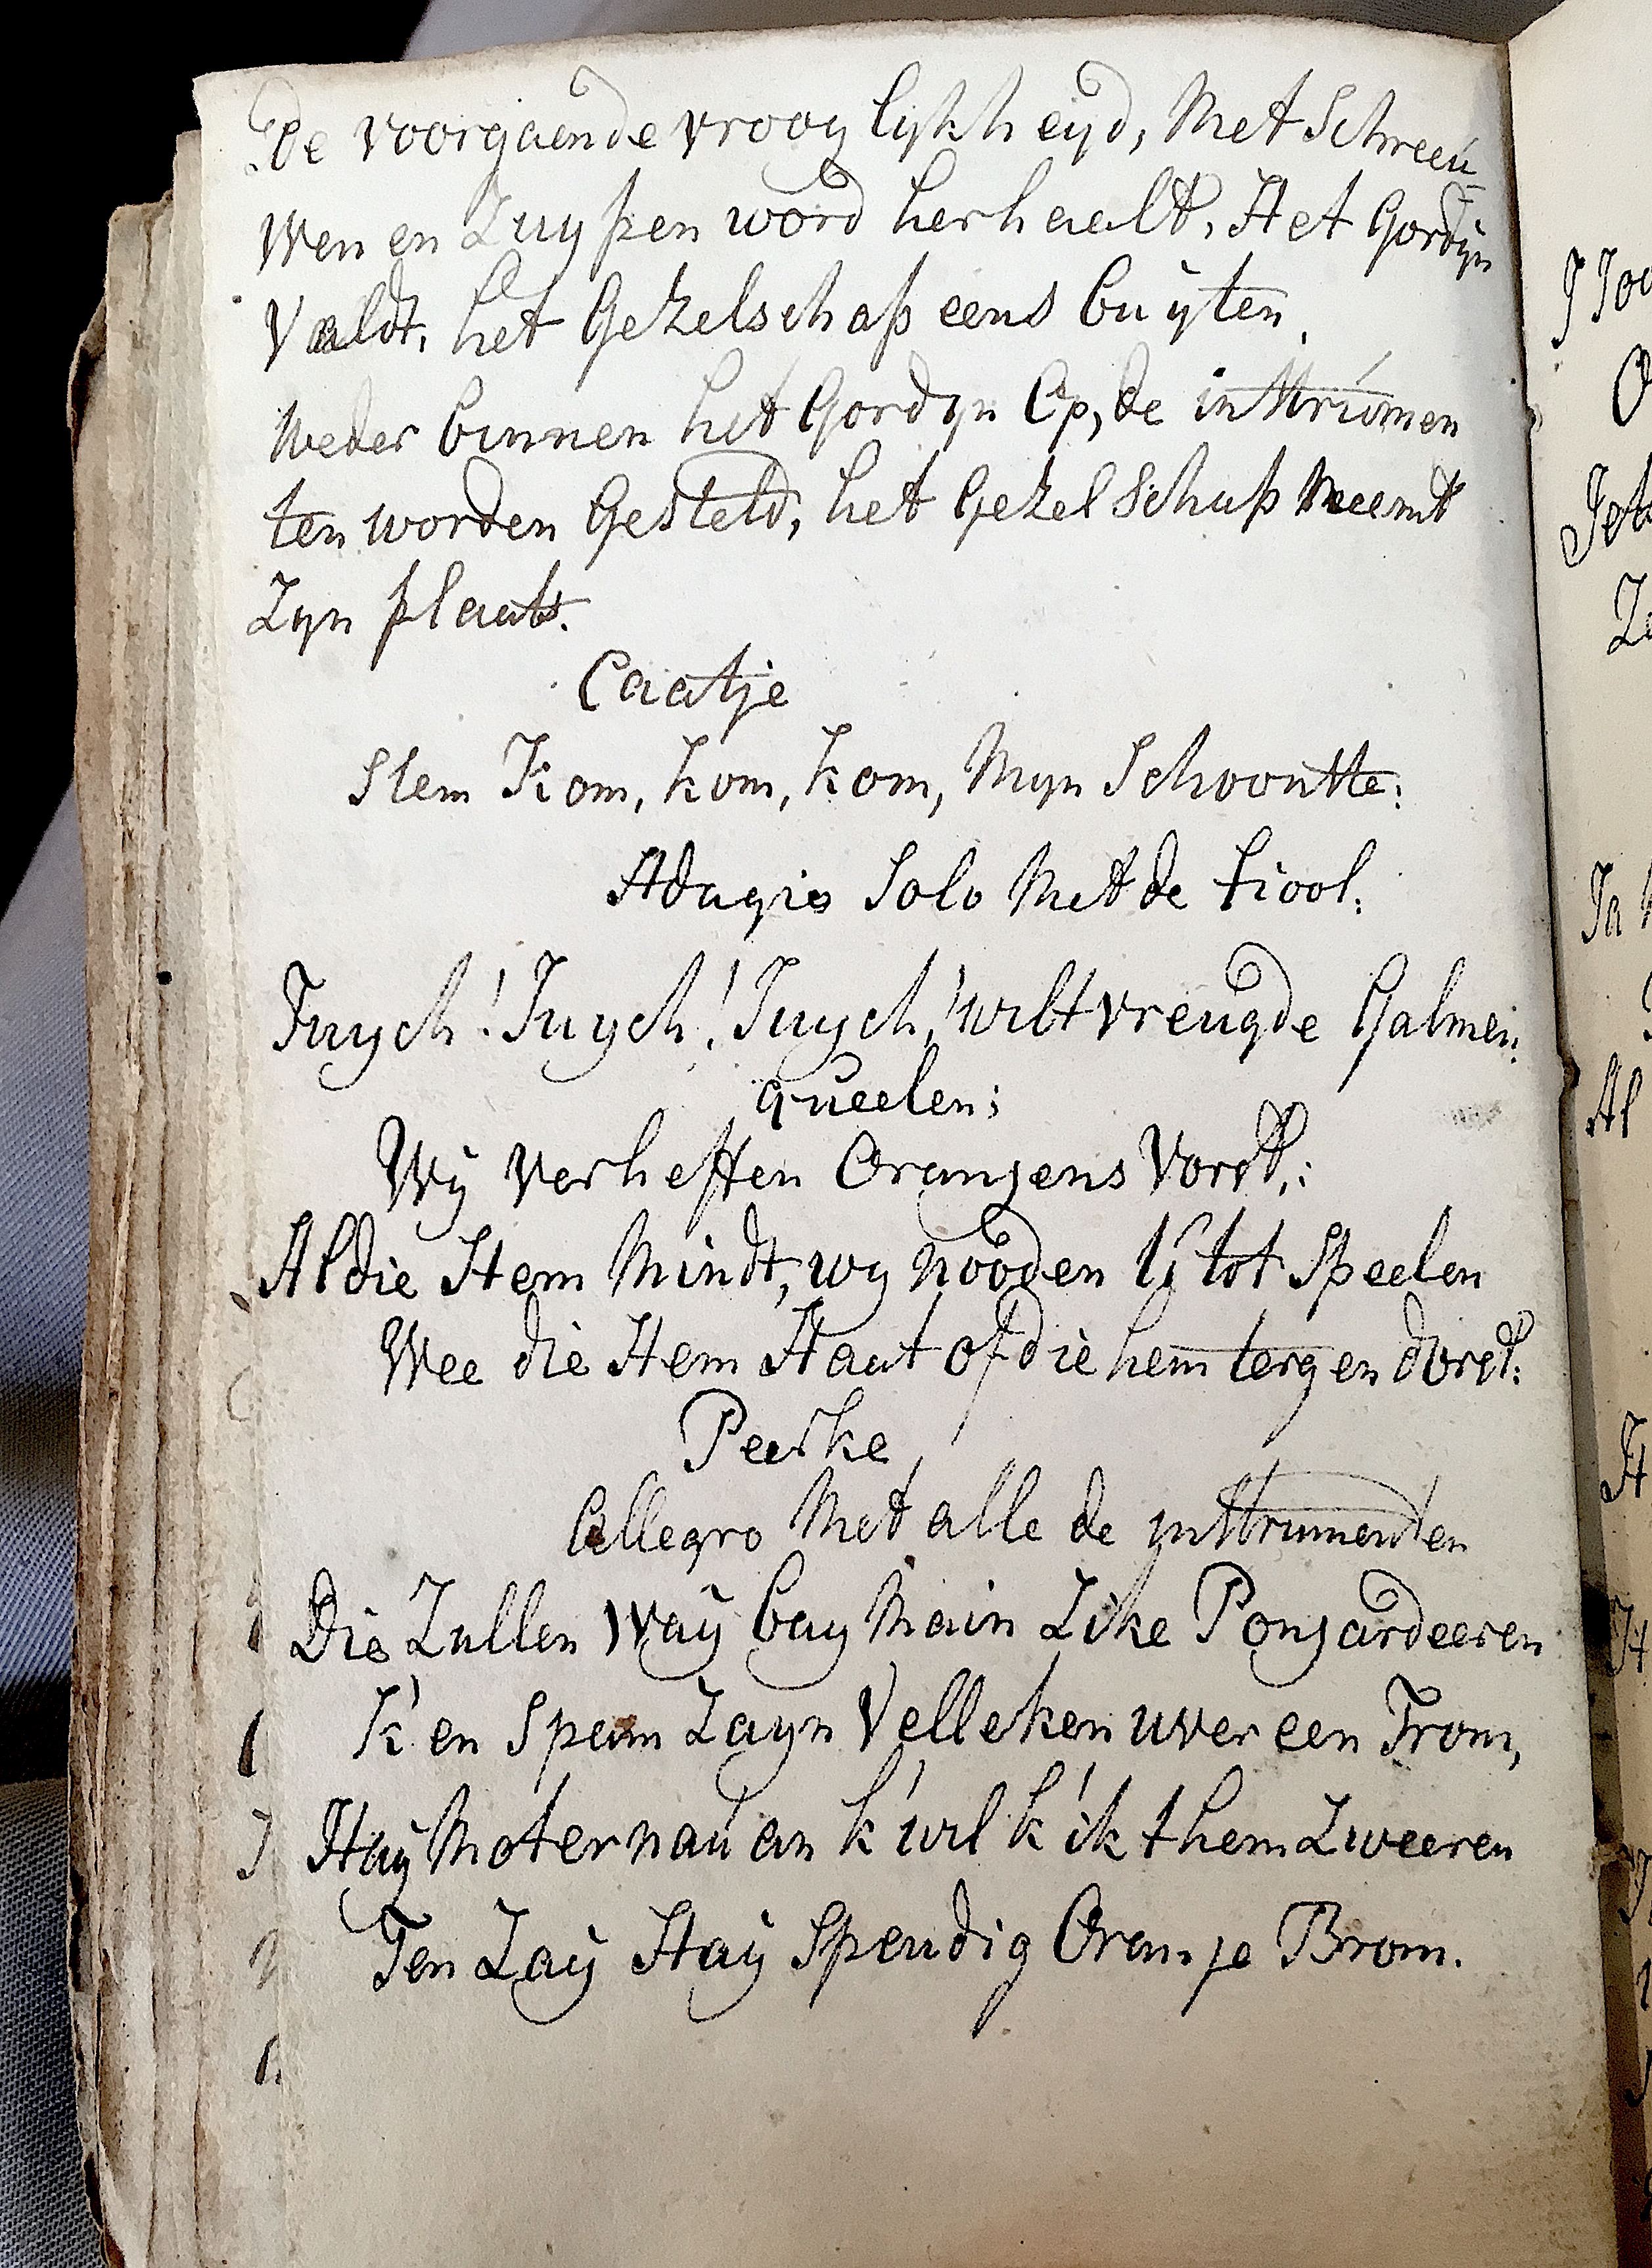 De voorgaende vrooylykheyd, Met Schreeu
wen en Zuypen word herhaeld, Het Gordyn
Valdt, het Gezelschap eens buÿten,
Weder binnen het Gordyn Op, de instrúmen
ten worden Gesteld, het Gezelschap Neemt
Zyn plaats.
Caatje
Stem Kom, kom, kom, Myn Schoonste:
Adagio Solo Met de fiool:
Juych! Juych! Juych! wilt vreugde Galmen:
queelen;
Wÿ verheffen Oranjens Vorst,:
Al die Hem Mindt, wy nooden U tot Speelen
Wee die Hem Haat of die hem tergen dorst:
Peerke
Allegro Met alle de ynstrumenten
Die Zullen Waÿ bay Main Zike Ponjardeeren
K'en Span Zayn Velleken uver een Trom,
Haÿ Moter nau an k'wil k'ik them Zweeren
Ten Zaÿ Haÿ Spendig Oranje Brom.